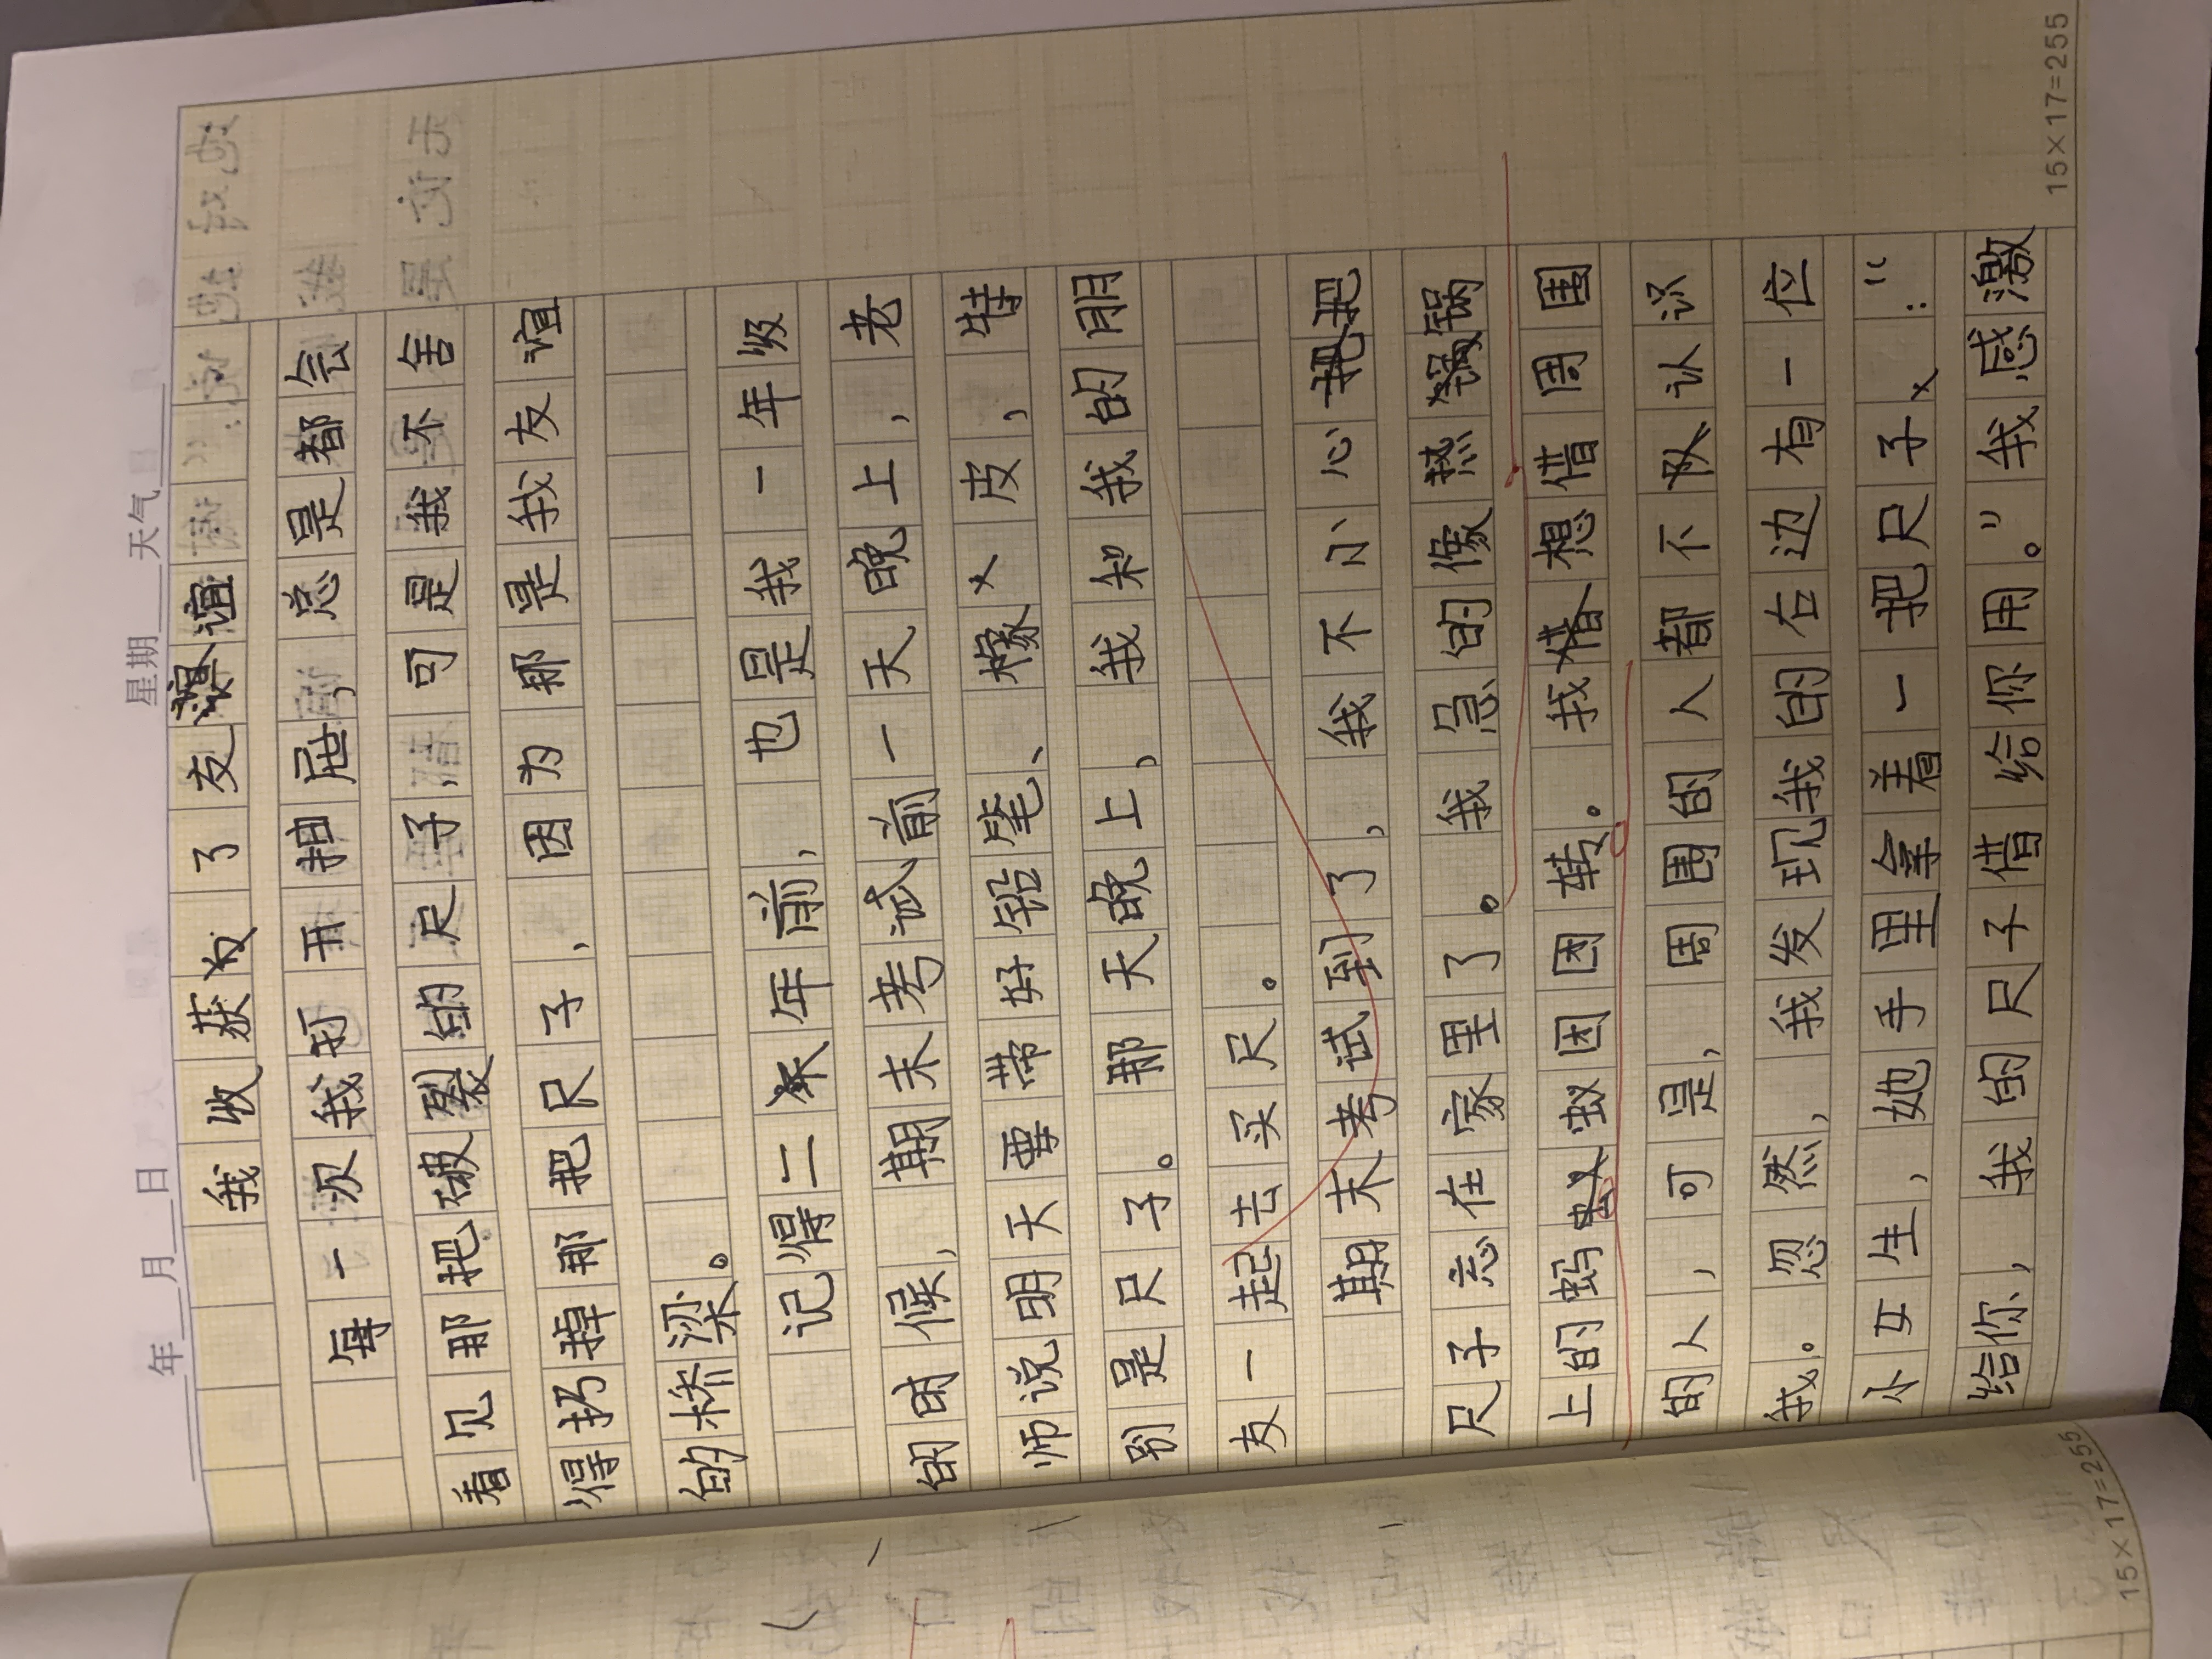 年 月 日 星期 天气
我收获了友谊
每一次我打开抽屉,总是都会
看见那把破裂的尺子,可是我不舍
得扔掉那把尺子,因为那是我友谊
的桥梁。
记得二年前,也是我一年级
的时候,期末考试前一天晚上,老
师说明天要带好铅笔、橡皮,特
别是尺子。那天晚上,我和我的朋
友一起去买尺。
期末考试到了,我不小心把
尺子忘在家里了。我急的像热锅
上的蚂蚁团团转。我想借周围
的人,可是,周围的人都不认识
我。忽然,我发现我的右边有一位
小女生,她手里拿着一把尺子:“
给你,我的尺子借给你用。”我感激
15×17=255
15×17=255